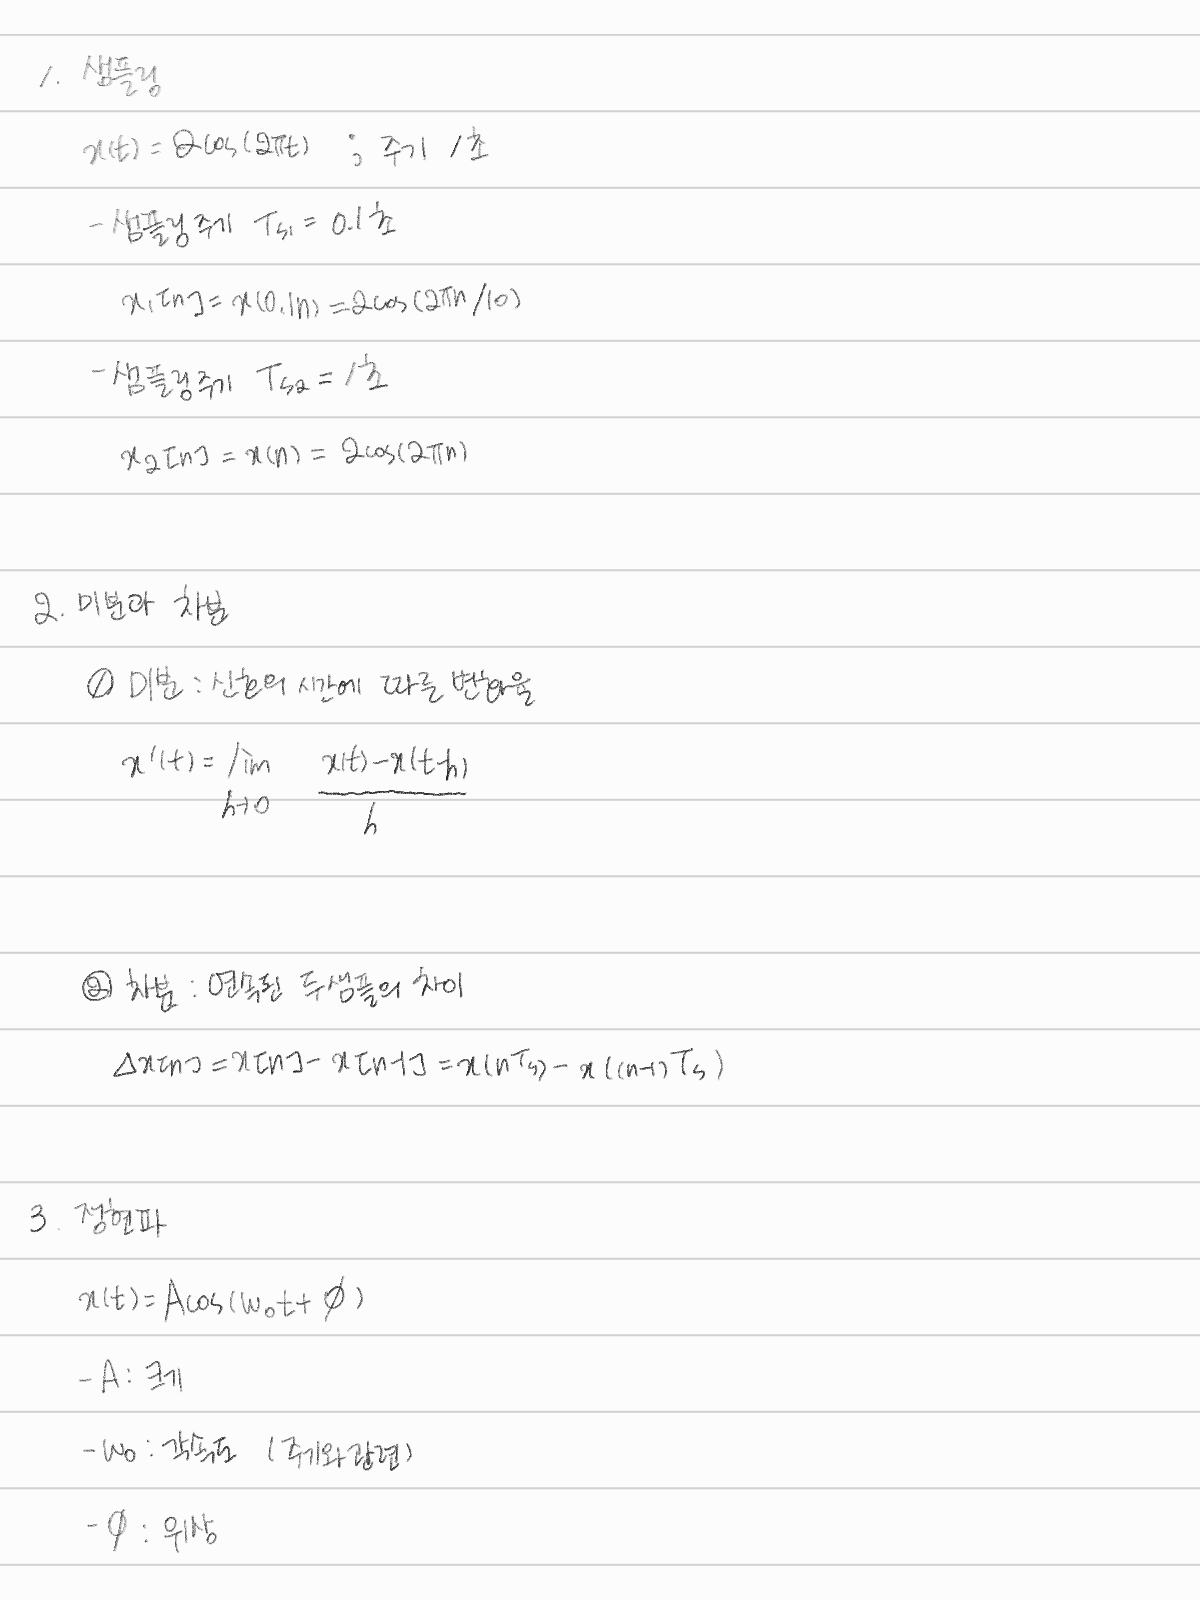 1. 샘플링
x(t) = 2cos(2πt) ; 주기 1초
- 샘플링 주기 Ts1 = 0.1초
x1[n] = x(0.1n) = 2cos(2πn/10)
- 샘플링 주기 Ts2 = 1초
x2[n] = x(n) = 2cos(2πn)
2. 미분과 차분
① 미분 : 신호의 시간에 따른 변화율
x'(t) = lim x(t)-x(t-h)
h→0 h
② 차분 : 연속된 두 샘플의 차이
Δx[n] = x[n] - x[n-1] = x(nTs) - x((n-1)Ts)
3. 정현파
x(t) = Acos(w0t + ø)
- A : 크기
- w0 : 각속도 (주기와 관련)
- ø : 위상